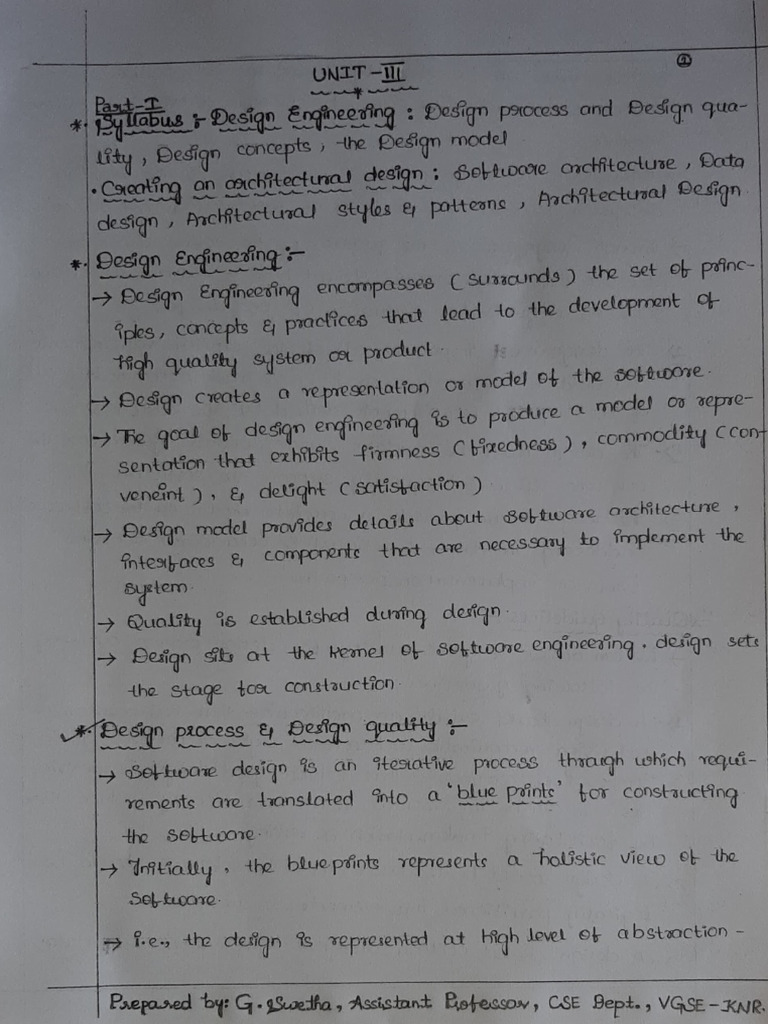 ①
UNIT - III
Part-I
*. Syllabus :- Design Engineering : Design process and Design qua-
lity, Design concepts, the Design model
. Creating an architectural design : Software architecture, Data
design, Architectural styles & patterns, Architectural Design
*. Design Engineering :-
→ Design Engineering encompasses (surrounds) the set of princ-
iples, concepts & practices that lead to the development of
high quality system or product.
→ Design creates a representation or model of the software.
→ The goal of design engineering is to produce a model or repre-
sentation that exhibits firmness (fixedness), commodity (con-
veneint), & delight (satisfaction)
→ Design model provides details about software architecture,
interfaces & components that are necessary to implement the
system.
→ Quality is established during design.
→ Design sits at the kernel of software engineering. design sets
the stage for construction.
*. Design process & Design quality :-
→ Software design is an iterative process through which requi-
rements are translated into a 'blue prints' for constructing
the software.
→ Initially, the blueprints represents a holistic view of the
software.
→ i.e., the design is represented at high level of abstraction -
Prepared by: G. Swetha, Assistant Professor, CSE Dept., VGSE-KNR.